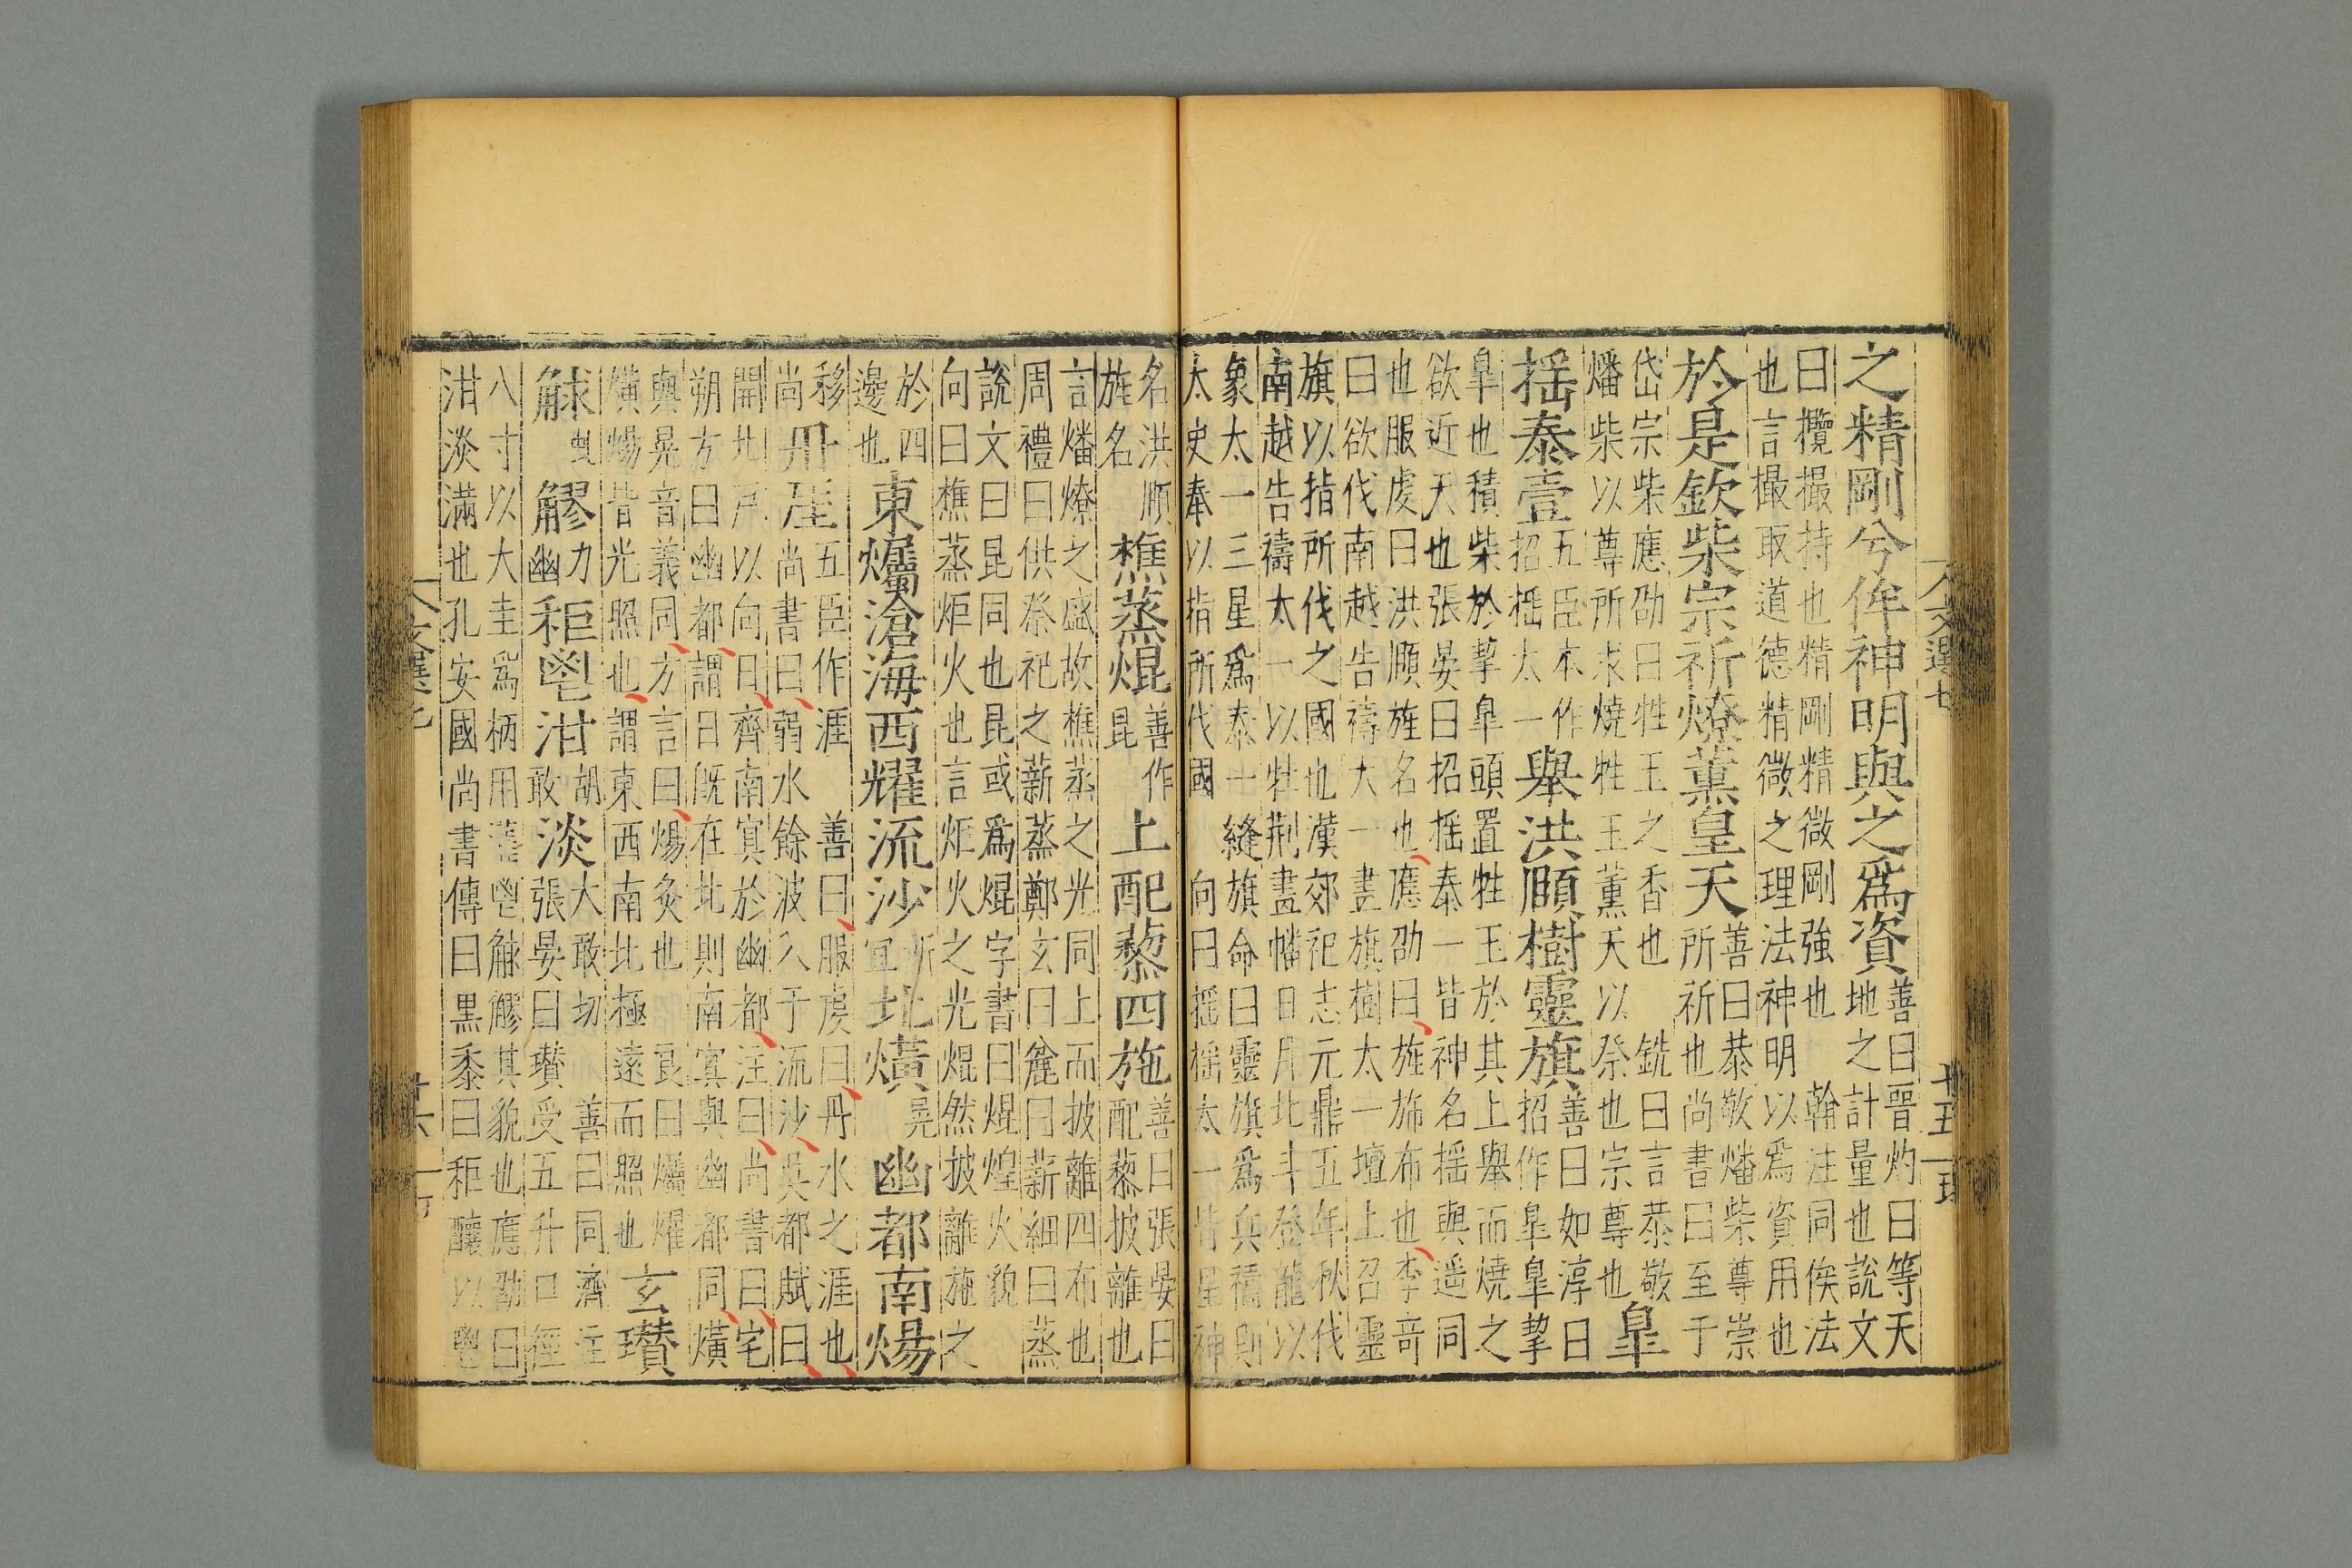 之精剛兮侔神明與之爲資善曰晉灼曰等天地之計量也說文
曰攬撮持也精剛精微剛強也翰注同侯法
也言撮取道德精微之理法神明以爲資用也
於是欽柴宗祈燎薰皇天善曰恭敬燔柴尊崇所祈也尚書曰至于
岱宗柴應劭曰牲玉之香也銑曰言恭敬
燔柴以尊所求燒牲玉薰天以祭也宗尊也皐
揺泰壹五臣本作招揺太一舉洪頤樹靈旗善曰如淳曰招作皐皐挈
皐也積柴於挈皐頭置牲玉於其上舉而燒之
欲近天也張晏曰招揺泰一皆神名揺與遥同
也服虔曰洪頤旌名也應劭曰旌斾布也李竒
曰欲伐南越告禱大一畫旗樹太一壇上召靈
旗以指所伐之國也漢郊祀志元鼎五年秋伐
南越告禱太一以牡荆畫幡日月北斗登龍以
象太一三星爲泰一縫旗命曰靈旗爲兵禱則
太史奉以指所伐國向曰揺揺太一皆星神
名洪頤旌名樵蒸焜善作昆上配藜四施善曰張晏曰配藜披離也
言燔燎之盛故樵蒸之光同上而披離四布也
周禮曰供祭祀之薪蒸鄭玄曰麄曰薪細曰蒸
說文曰昆同也昆或爲焜字書曰焜煌火貌
向曰樵蒸炬火也言炬火之光焜然披離施之
於四邊也東爥滄海西耀流沙北爌晃幽都南煬
移尚丹厓五臣作涯善曰服虔曰丹水之涯也
尚書曰弱水餘波入于流沙吳都賦曰
開北戸以向日齊南㝠於幽都注曰尚書曰宅
朔方曰幽都謂日旣在北則南㝠與幽都同爌
與晃音義同方言曰煬灸也良曰爥燿
爌煬皆光照也謂東西南北極遠而照也玄瓚
觩虬䚧力幽秬鬯泔胡敢淡大敢切善曰同濟注張晏曰瓚受五升口徑
八寸以大圭爲柄用灌鬯觩䚧其貌也應劭曰
泔淡滿也孔安國尚書傳曰黑黍曰秬釀以鬯